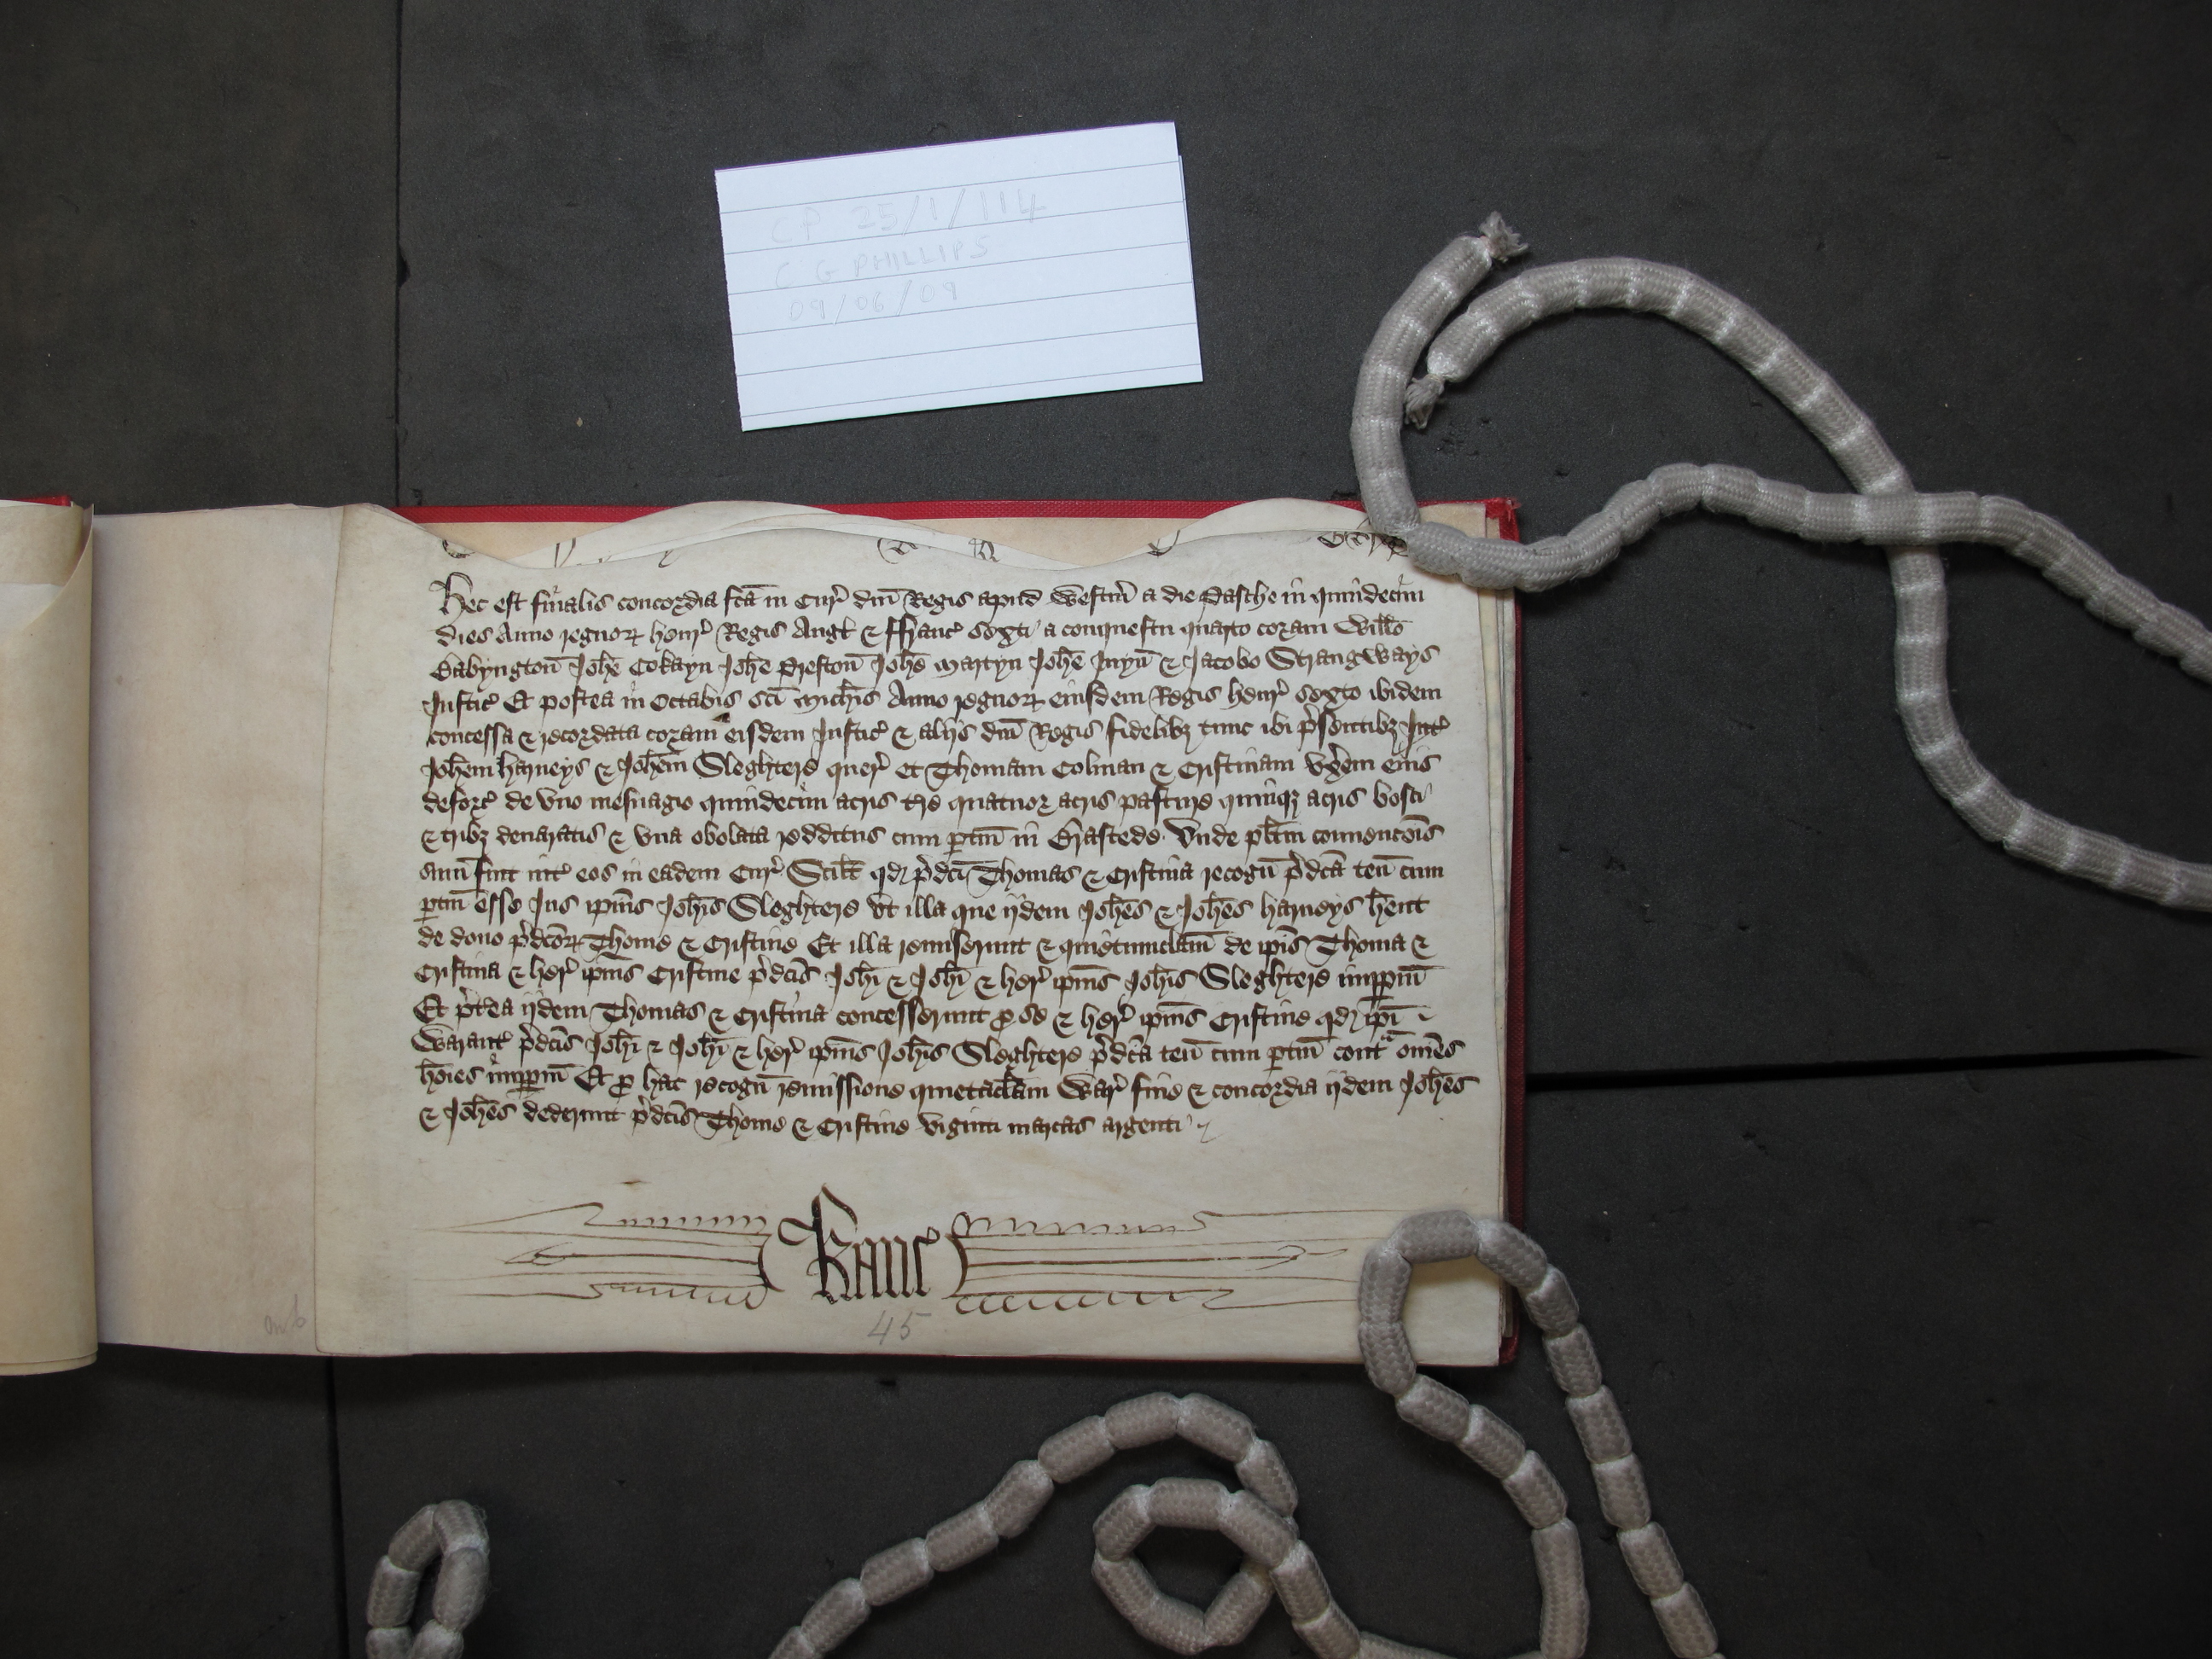 CP 25/1/114
C G PHILLIPS
09/06/09
Hec est finalis concordia fcā in Cur' dnī Regis apud Westm̄ a die Pasche in quindecim
dies Anno regnoꝝ Henr' Regis Angł & ffranc' sexti a conquestu quarto coram Willō
Babyngton̄ Johē Cokayn Johē Preston̄ Johē Martyn Johē Juyn̄ & Jacobo Strangways
Justic' Et postea in Octabis scī Mich̄is Anno regnoꝝ eiusdem Regis Henr' sexto ibidem
concessa & recordata coram eisdem Justic' & alijs dnī Regis fidelibꝫ tunc ibi p'sentibꝫ Int'
Joh̄em Harueys & Joh̄em Sleghtere quer' et Thomam Colman & Cristinam vx'em eius
deforc' de vno mesuagio quindecim acris t're quatuor acris pasture quinqꝫ acris bosci
& tribꝫ denaratis & vna obolata redditus cum ptin̄ in Brastede Vnde plitm̄ conuencōis
sum̄ fuit int' eos in eadem Cur' Scilt̄ qd p'dcī Thomas & Cristina recogn̄ p'dcā ten̄ cum
ptin̄ esse Jus ipīus Joh̄is Sleghtere vt illa que ijdem Joh̄es & Joh̄es Harueys h̄ent
de dono p'dcōꝝ Thome & Cristine Et illa remiserunt & quietumclam̄ de ipīs Thoma &
Cristina & her' ipīus Cristine p'dcīs Joh̄i & Joh̄i & her' ipīus Joh̄is Sleghtere imppm̄
Et p't'ea ijdem Thomas & Cristina concesserunt ꝓ se & her' ipīus Cristine qd ipī
Warant' p'dcīs Joh̄i & Joh̄i & her' ipīus Joh̄is Sleghtere p'dcā ten̄ cum ptin̄ contᵃ om̄es
hōies imppm̄ Et ꝓ hac recogn̄ remissione quietaclam̄ War' fine & concordia ijdem Joh̄es
& Joh̄es dederunt p'dcīs Thome & Cristine viginti marcas argenti
Kanc'
45